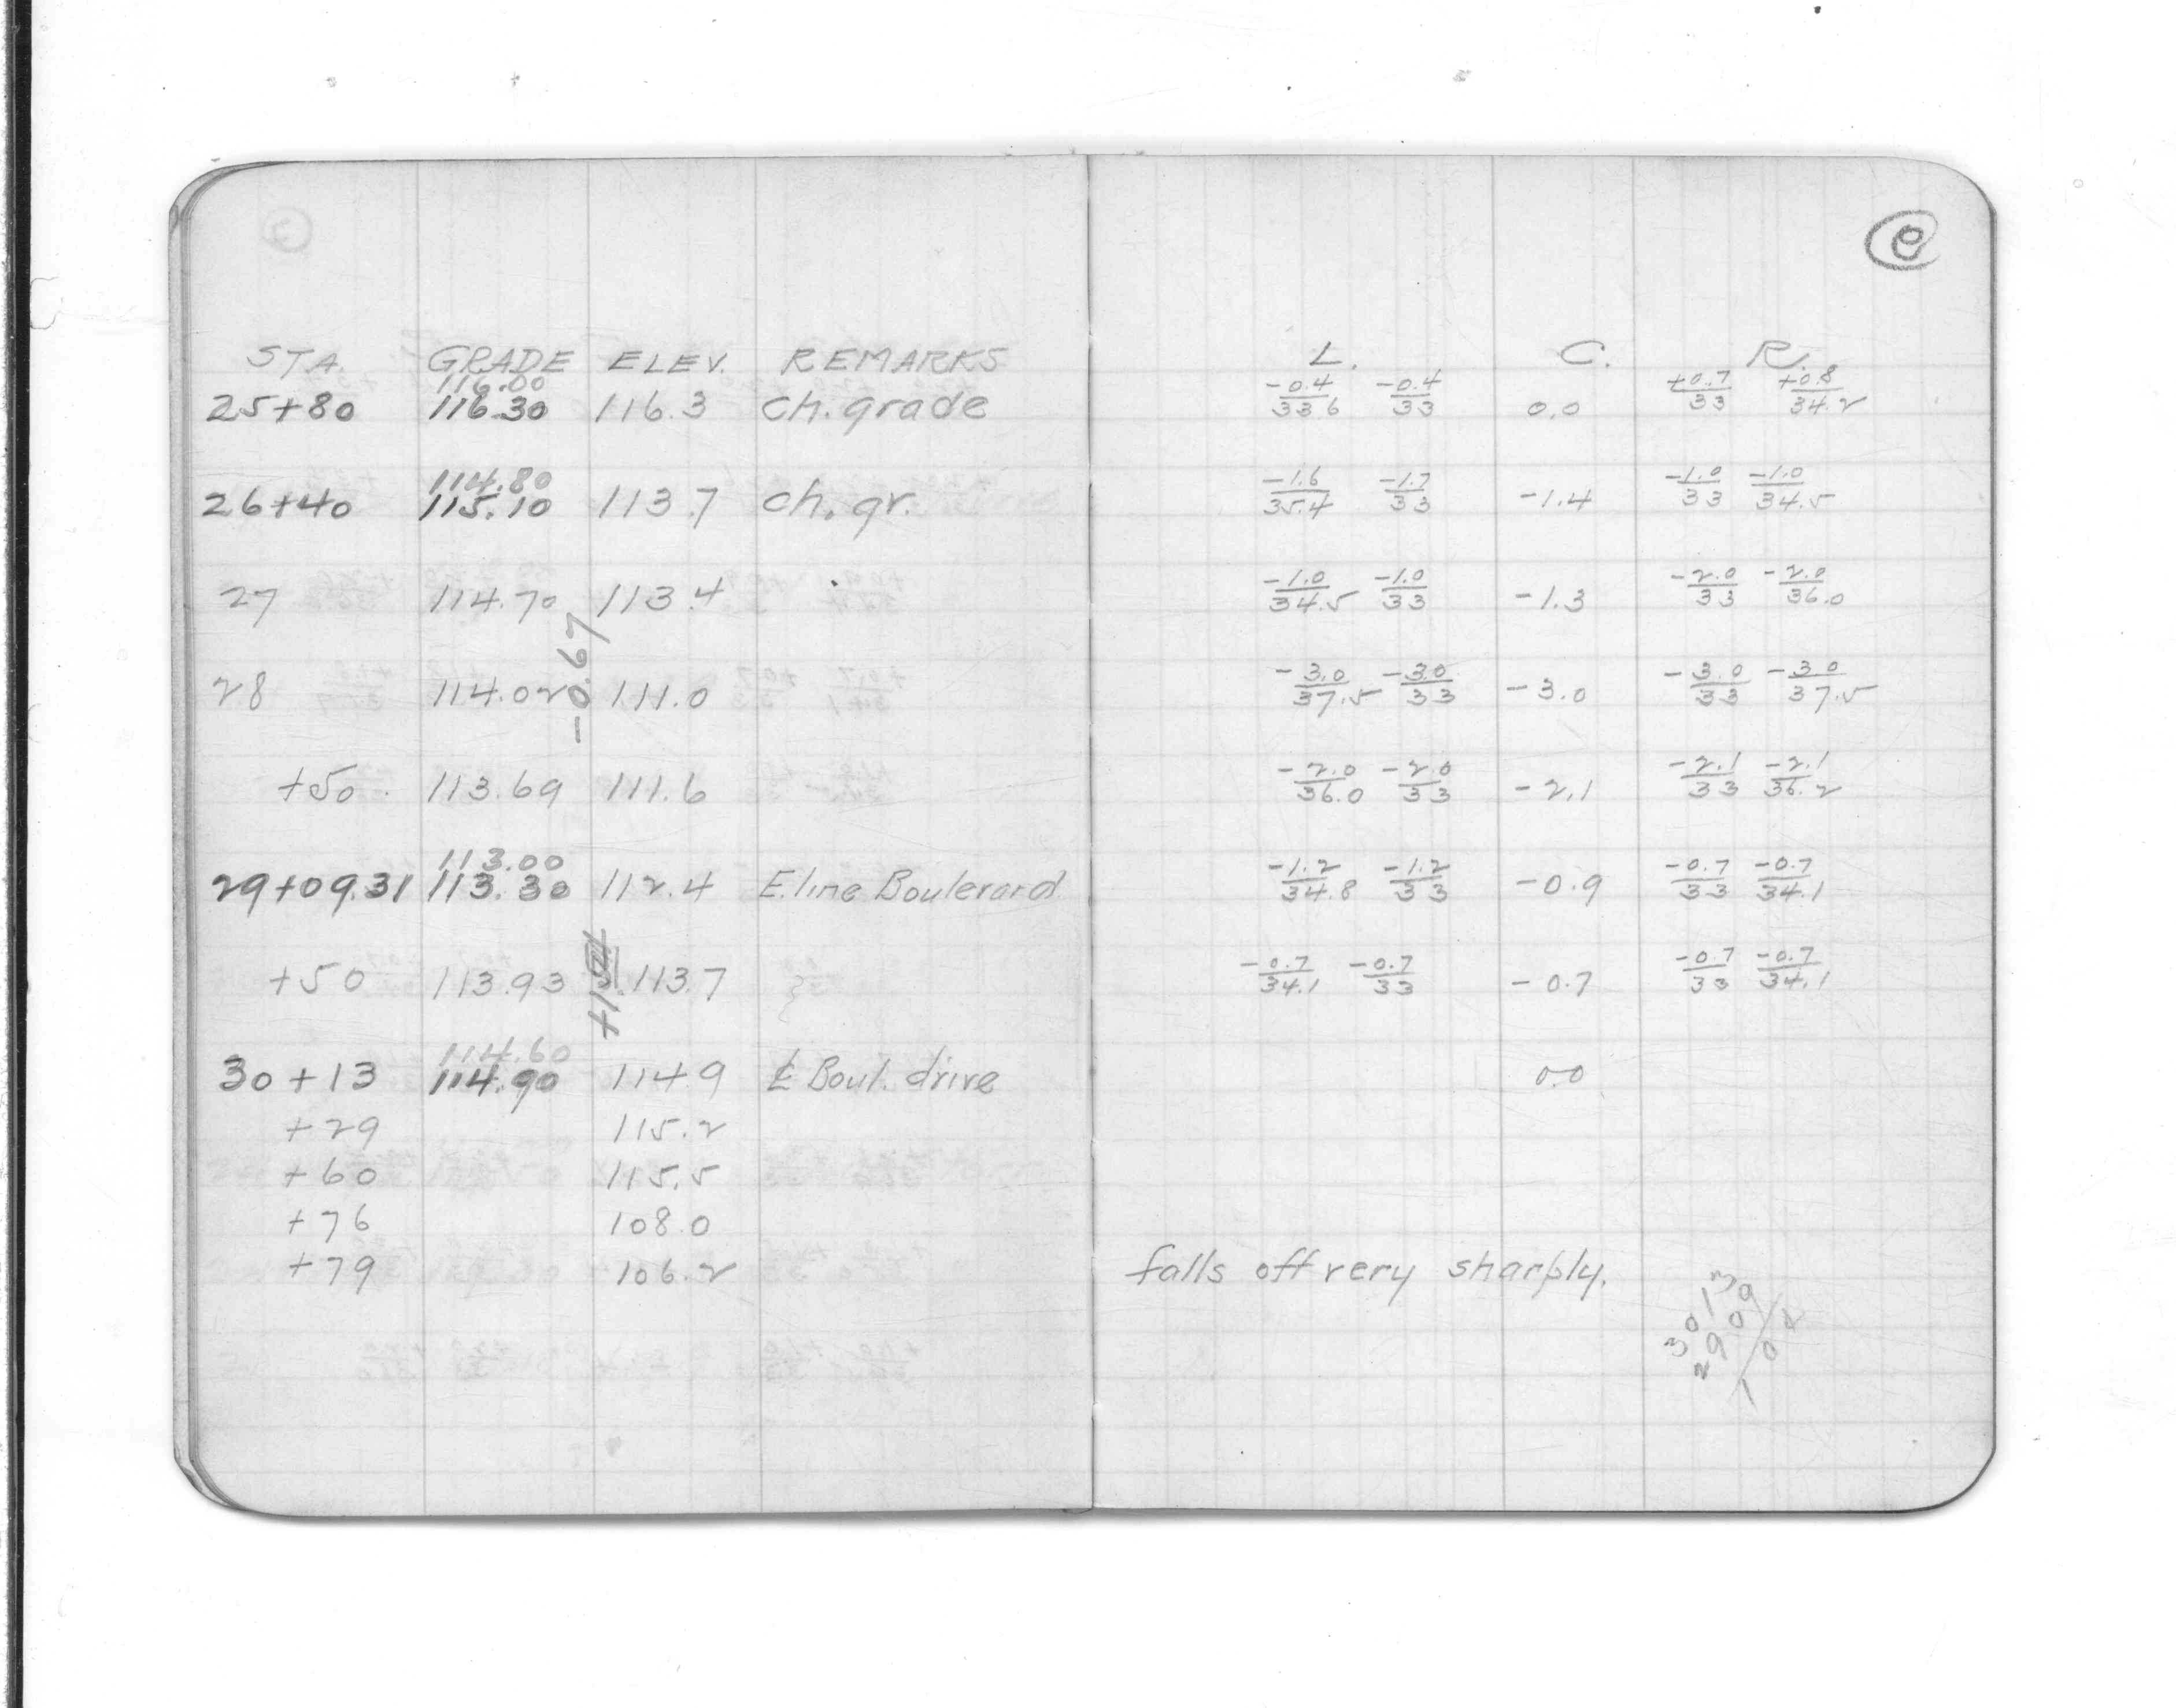 STA. GRADE ELEV. REMARKS
116.00
25+80 116.30 116.3 Ch. grade
114.80
26+40 115.10 113.7 ch. gr.
27 114.70 113.4
-0.67
28 114.02 111.0
+50 113.69 111.6
113.00
29+09.31 113.30 112.4 E. line Boulevard
+50 113.93 113.7
114.60
30+13 114.90 114.9 ℄ Boul. drive
+29 115.2
+60 115.5
+76 108.0
+79 106.2
L. C. R.
-0.4 -0.4 +0.7 +0.8
33.6 33 0.0 33 34.2
-1.6 -1.7 -1.0 -1.0
35.4 33 -1.4 33 34.5
-1.0 -1.0 -2.0 -2.0
34.5 33 -1.3 33 36.0
-3.0 -3.0 -3.0 -3.0
37.5 33 -3.0 33 37.5
-2.0 -2.0 -2.1 -2.1
36.0 33 -2.1 33 36.2
-1.2 -1.2 -0.7 -0.7
34.8 33 -0.9 33 34.1
-0.7 -0.7 -0.7 -0.7
34.1 33 -0.7 33 34.1
0.0
falls off very sharply.
3013
2909
104